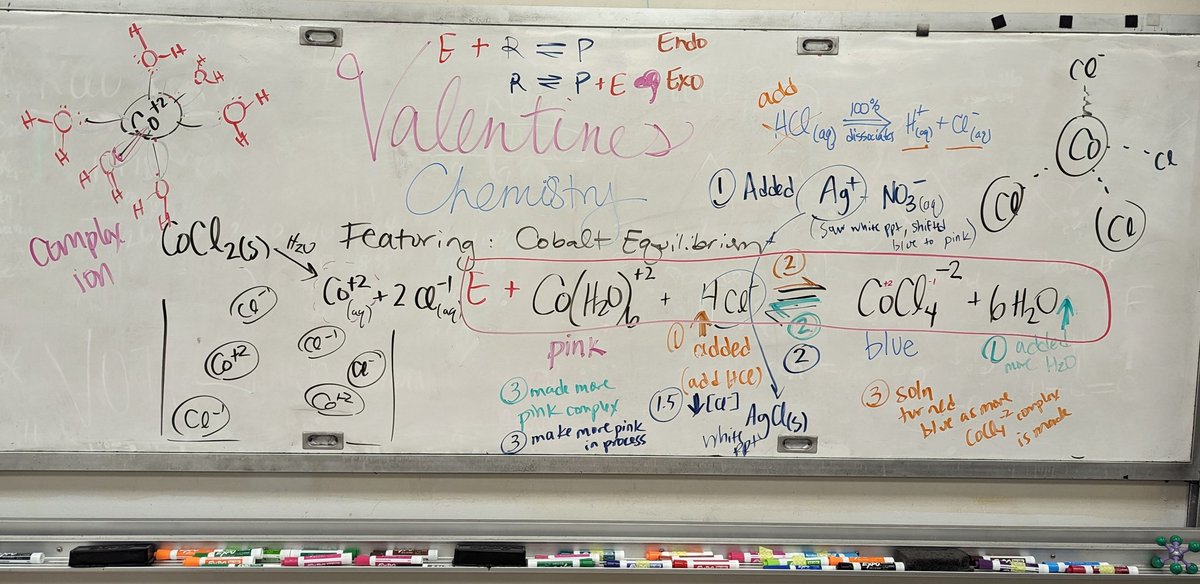 E + R ⇌ P Endo
R ⇌ P + E Exo
Valentines
Chemistry
Featuring: Cobalt Equilibrium
Co+2
H
H
O
H
H
O
H
O
H
H
O
H
H
O
H
H
O
complex
ion
CoCl2(s) H2O →
Co+2(aq) + 2 Cl-1(aq)
Cl-1
Co+2
Cl-1
Cl-
Co+2
Cl-1
add
HCl(aq) 100% dissociates → H+(aq) + Cl-(aq)
① Added Ag+ NO3-(aq)
(saw white ppt, shifted
blue to pink)
Cl-
Co
Cl
Cl
Cl
E + Co(H2O)6+2 + 4Cl- ⇌ CoCl4-2 + 6H2O
+2 -1
②
②
②
pink
blue
① added
(add HCl)
① added
more H2O
③ made more
pink complex
③ make more pink
in process
1.5 ↓[Cl-]
AgCl(s)
white
ppt
③ soln
turned
blue as more
CoCl4-2 complex
is made
EXPO